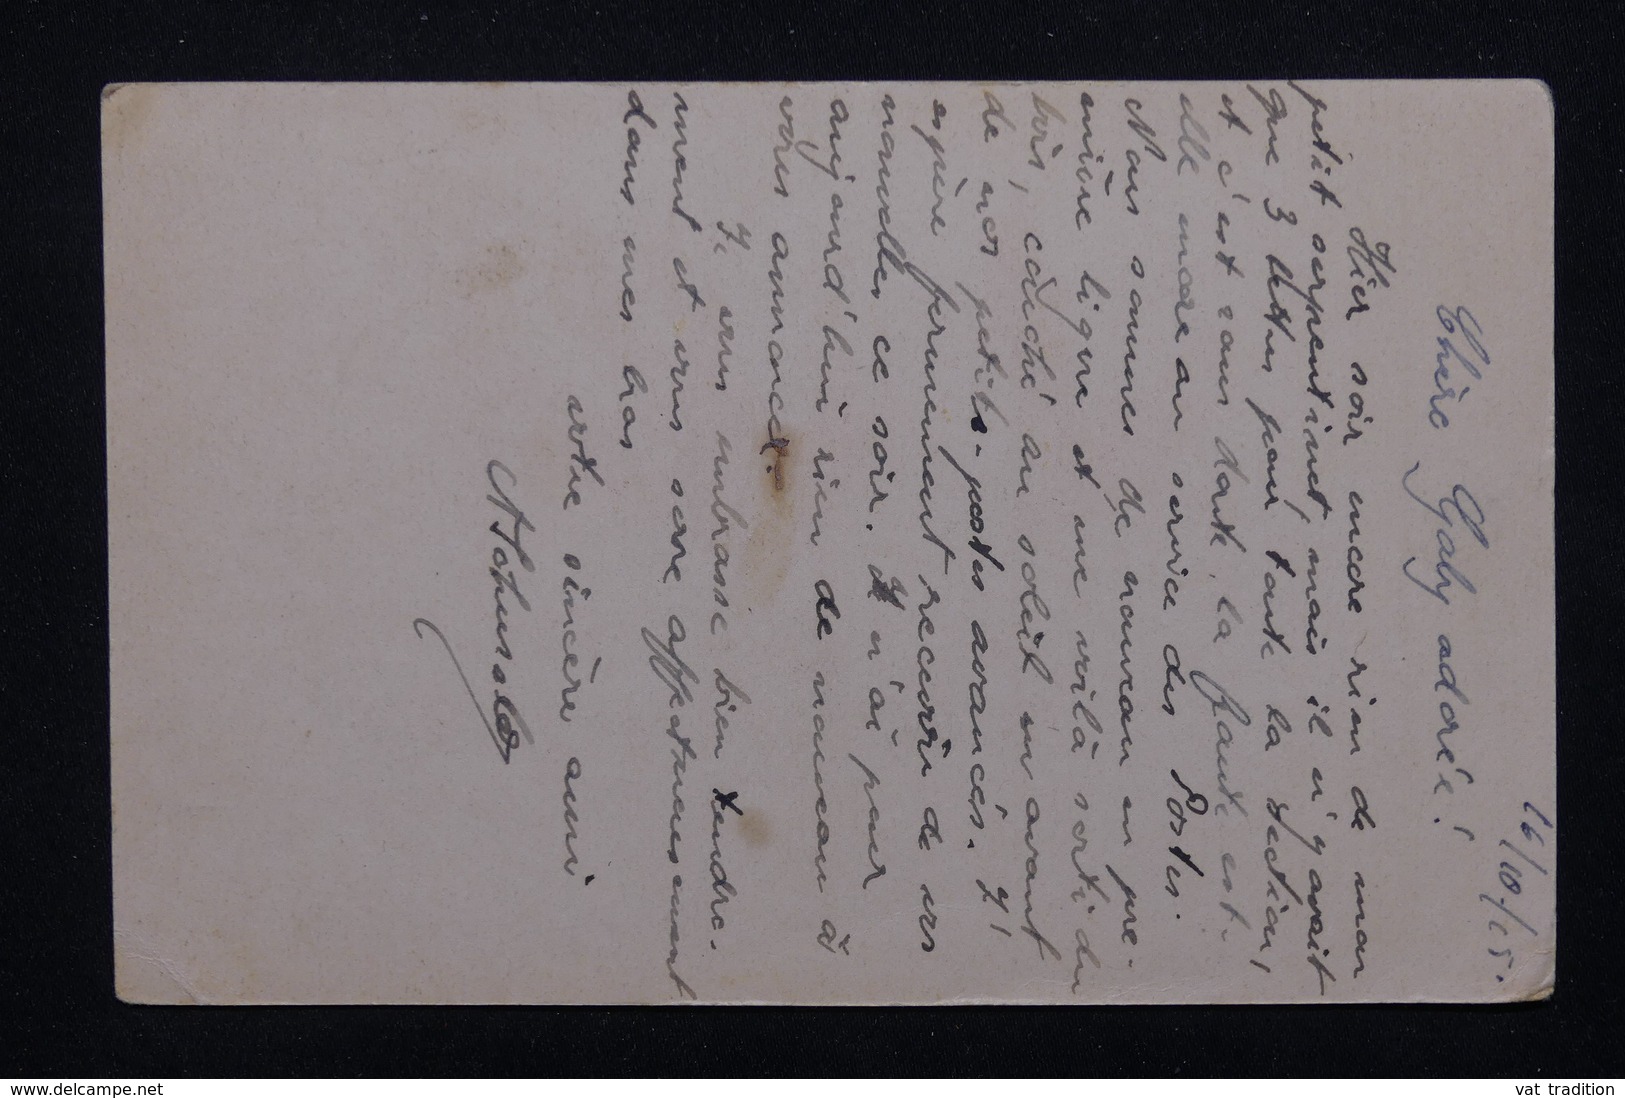 16/10/15.
Chère Gaby adorée!
Hier soir encore rien de mon
petit serpentin, mais il n'y avait
que 3 lettres pour toute la section,
et c'est sans doute la faute est-
elle encore au service des Postes.
Nous sommes de nouveau en pre-
mière ligne et me voilà sorti du
bois, couché au soleil en avant
de nos petits-postes avancés. J'
espère fermement recevoir de vos
nouvelles ce soir. Il n'a pour
aujourd'hui rien de nouveau à
vous annoncer.
Je vous embrasse bien tendre-
ment et vous serre affectueusement
dans mes bras
votre sincère ami
www.delcampe.net
vat tradition